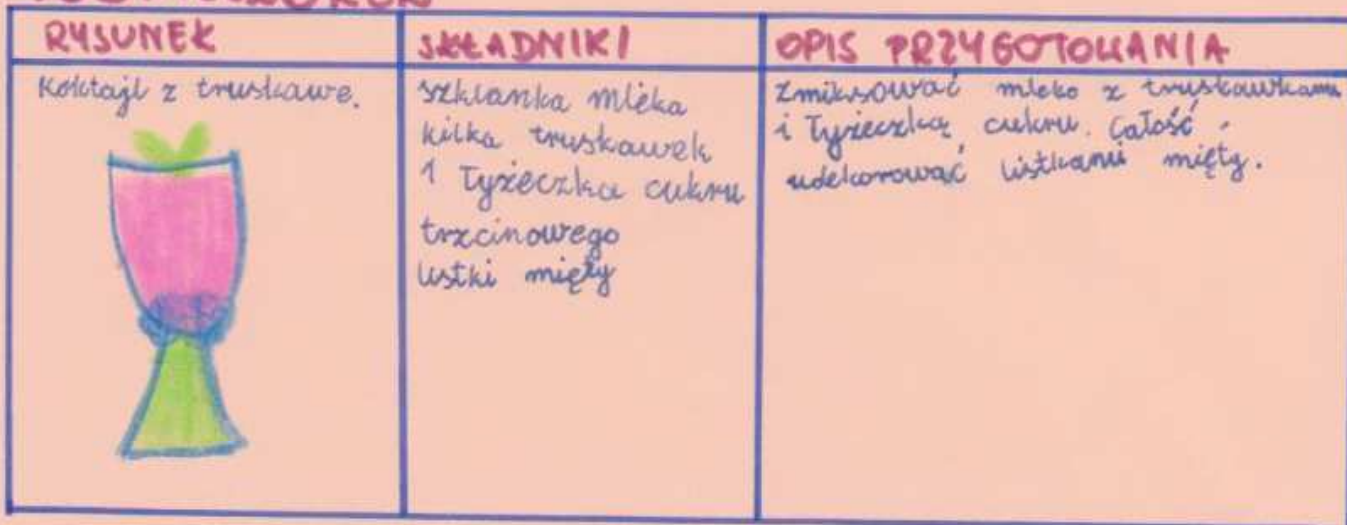 RYSUNEK
SKŁADNIKI
OPIS PRZYGOTOWANIA
Koktajl z truskawe.
szklanka mleka
kilka truskawek
1 Tyżeczka cukru
trzcinowego
listki mięty
Zmiksować mleko z truskawkami
i Tyżeczką cukru. Całość
udekorować listkami mięty.